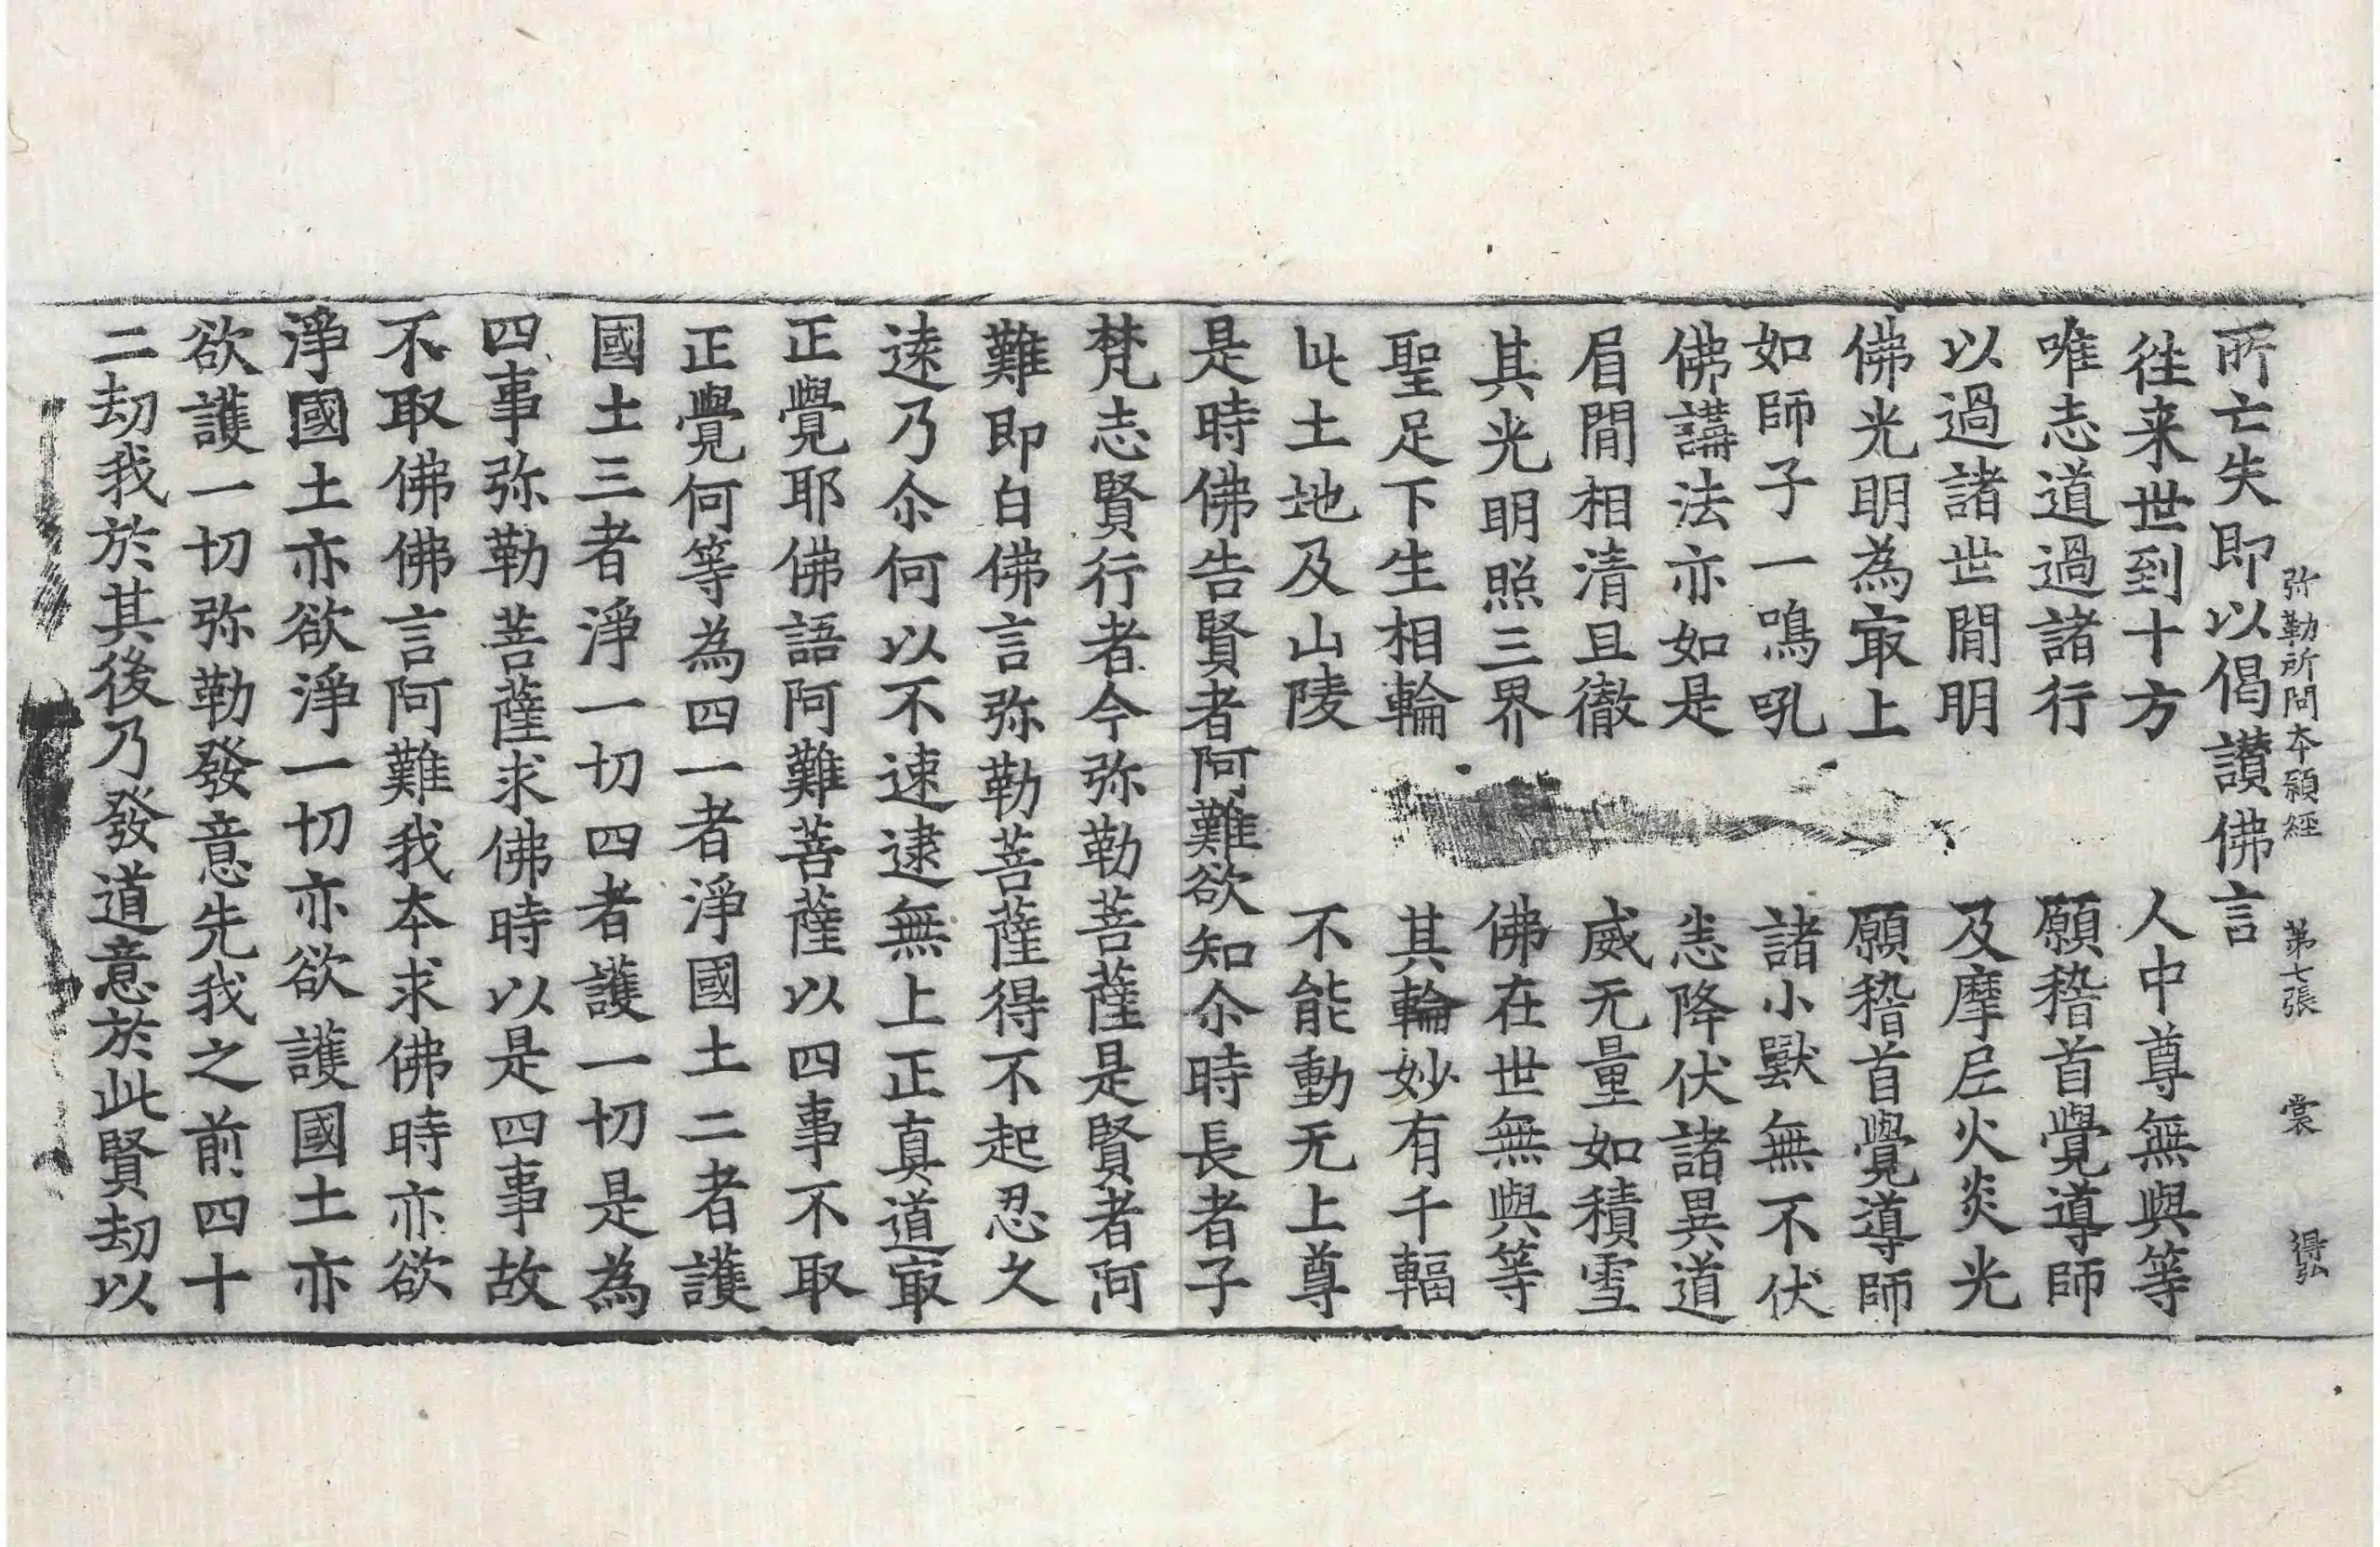 弥勒所問本願經 第七張 裳 得弘
所亡失即以偈讃佛言
徃来世到十方 人中尊無與等
唯志道過諸行 願稽首覺導師
以過諸世閒明 及摩尼火炎光
佛光明為㝡上 願稽首覺導師
如師子一鳴吼 諸小獸無不伏
佛講法亦如是 悉降伏諸異道
眉閒相清且徹 威无量如積雪
其光明照三界 佛在世無與等
聖足下生相輪 其輪妙有千輻
此土地及山陵 不能動无上尊
是時佛告賢者阿難欲知尒時長者子
梵志賢行者今弥勒菩薩是賢者阿
難即白佛言弥勒菩薩得不起忍久
逺乃尒何以不速逮無上正真道㝡
正覺耶佛語阿難菩薩以四事不取
正覺何等為四一者淨國土二者護
國土三者淨一切四者護一切是為
四事弥勒菩薩求佛時以是四事故
不取佛佛言阿難我夲求佛時亦欲
淨國土亦欲淨一切亦欲護國土亦
欲護一切弥勒發意先我之前四十
二劫我於其後乃發道意於此賢劫以